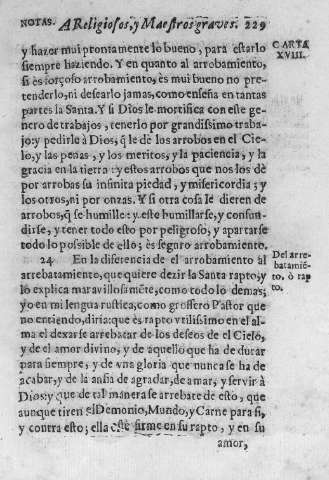 NOTAS. A Religiosos, y Maestros graves. 229
y hazer mui prontamente lo bueno, para estarlo
siempre haziendo. Y en quanto al arrobamiento,
si es forçoso arrobamiento, es mui bueno no pre-
tenderlo, ni desearlo jamas, como enseña en tantas
partes la Santa. Y si Dios le mortifica con este gene-
ro de trabajos, tenerlo por grandissimo traba-
jo: y pedirle à Dios, q̃ le dè los arrobos en el Cie-
lo, y las penas, y los meritos, y la paciencia, y la
gracia en la tierra: y estos arrobos que nos los dè
por arrobas su infinita piedad, y misericordia; y
los otros, ni por onzas. Y si otra cosa le dieren de
arrobos, q̃ se humille: y este humillarse, y confun-
dirse, y tener todo esto por peligroso, y apartarse
todo lo possible de ello; es seguro arrobamiento.
24 En la diferencia de el arrobamiento al
arrebatamiento, que quiere dezir la Santa rapto, y
lo explica maravillosamẽte, como todo lo demas;
yo en mi lengua rustica, como grossero Pastor que
no entiendo, diria: que es rapto vtilissimo en el al-
ma el dexarse arrebatar de los deseos de el Cielo,
y de el amor divino, y de aquello que ha de durar
para siempre, y de vna gloria que nunca se ha de
acabar, y de la ansia de agradar, de amar, y servir à
Dios: y que de tal manera se arrebate de esto, que
aunque tiren el Demonio, Mundo, y Carne para si,
y contra esto; ella estè firme en su rapto, y en su
amor,
CARTA
XVIII.
Del arre-
batamiẽ-
to, ò rap
to.